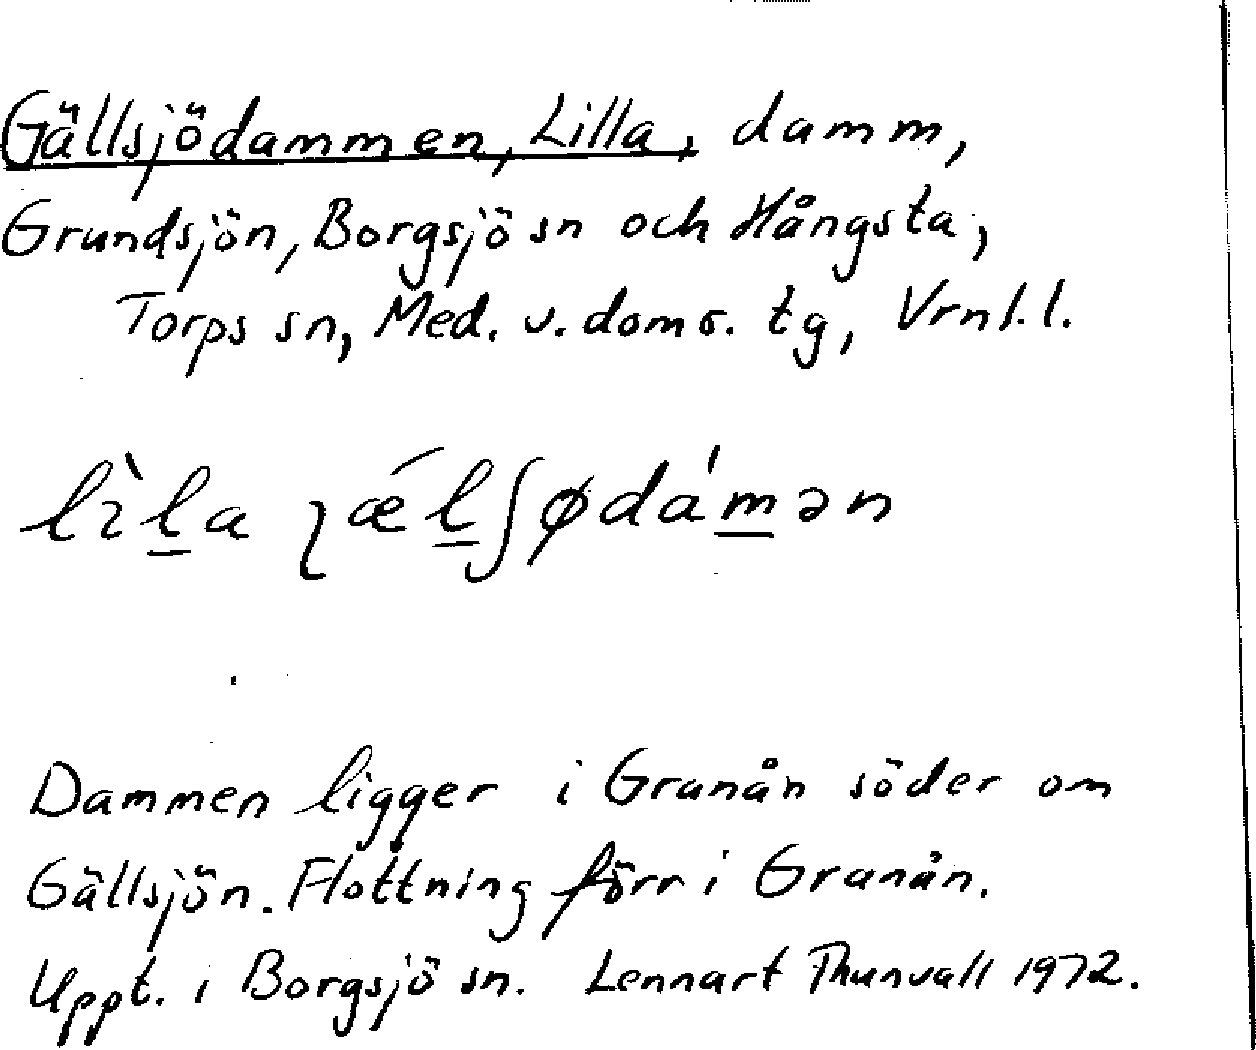 Gällsjödammen, Lilla, damm,
Grundsjön, Borgsjö sn och Hångsta,
Torps sn, Med. v. doms. tg, Vrnl. l.
lìl̲a ʅǽl̲ʃødám̲ən
Dammen ligger i Granån söder om
Gällsjön. Flottning förr i Granån.
Uppt. i Borgsjö sn. Lennart Thunvall 1972.